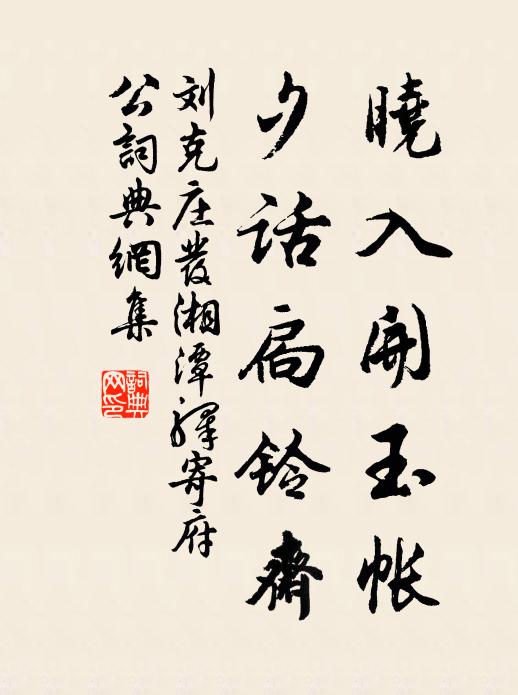 曉入開玉帳
夕话扃鈴齋
刘克庄發湘潭驛寄府
公詞典網集
詞典網印